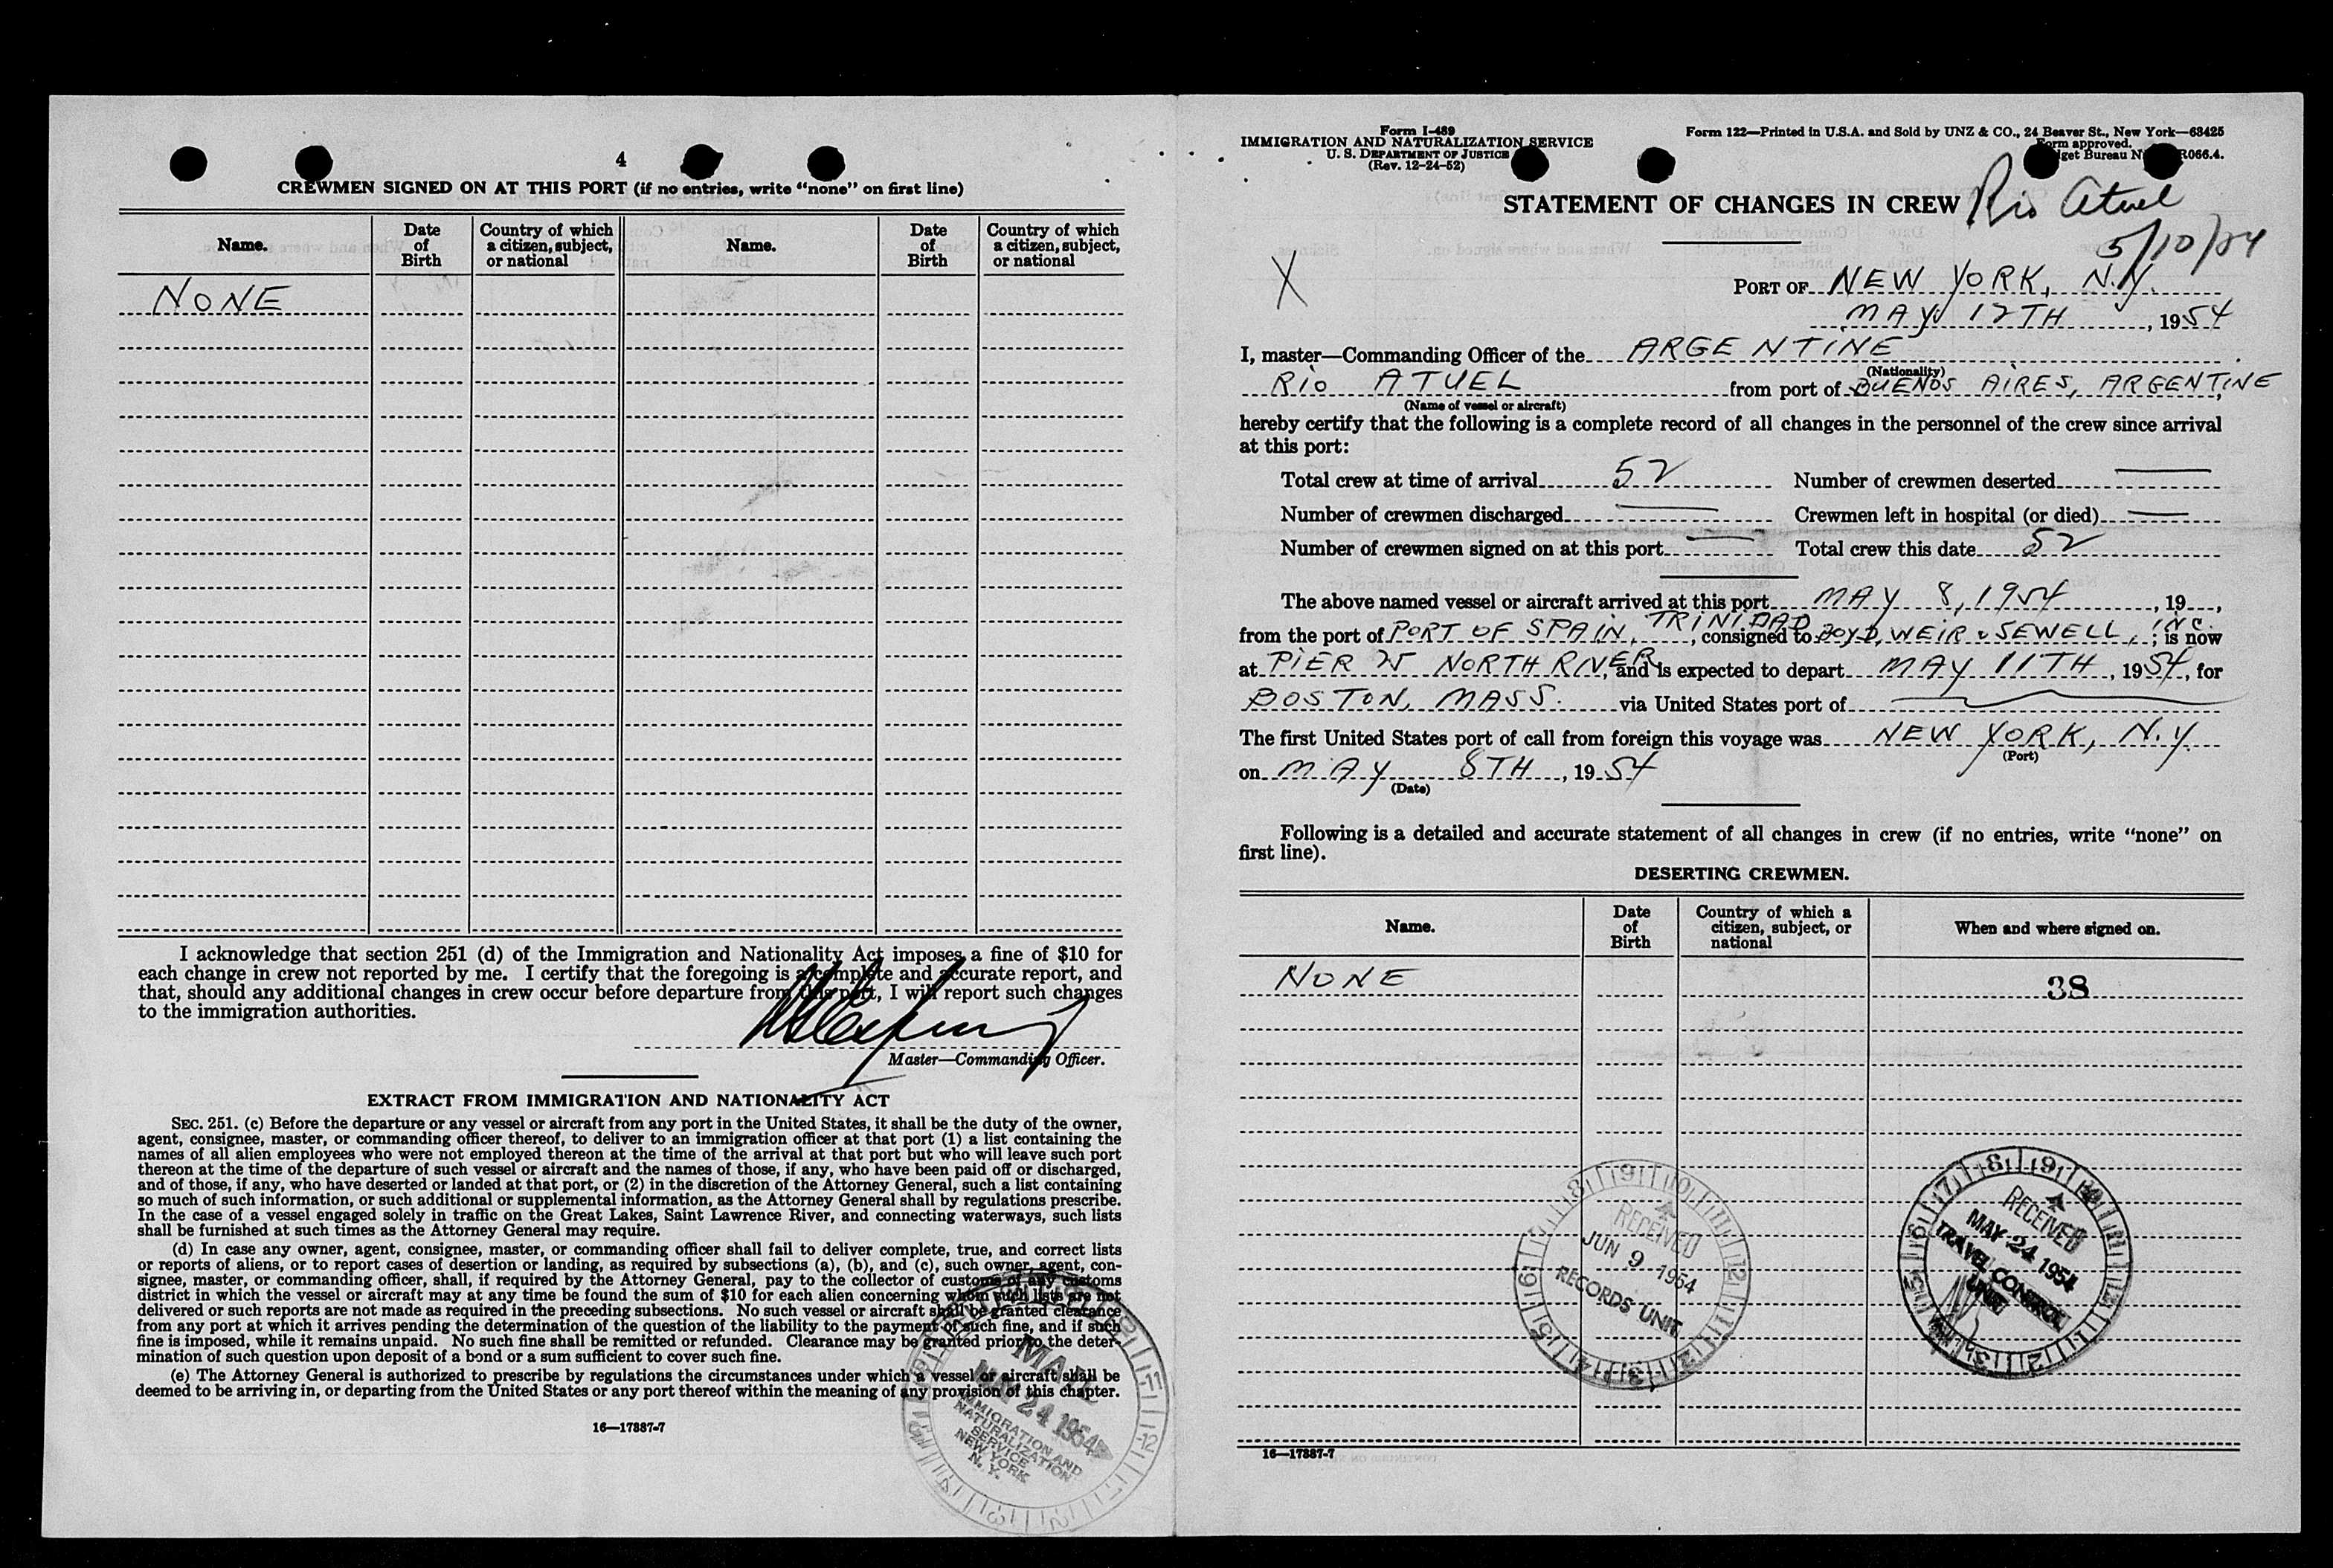 4
CREWMEN SIGNED ON AT THIS PORT (if no entries, write “none” on first line)
Name. Date of Birth Country of which a citizen, subject, or national Name. Date of Birth Country of which a citizen, subject, or national
NONE
I acknowledge that section 251 (d) of the Immigration and Nationality Act imposes a fine of $10 for
each change in crew not reported by me. I certify that the foregoing is a complete and accurate report, and
that, should any additional changes in crew occur before departure from this port, I will report such changes
to the immigration authorities.
Master—Commanding Officer.
EXTRACT FROM IMMIGRATION AND NATIONALITY ACT
SEC. 251. (c) Before the departure or any vessel or aircraft from any port in the United States, it shall be the duty of the owner,
agent, consignee, master, or commanding officer thereof, to deliver to an immigration officer at that port (1) a list containing the
names of all alien employees who were not employed thereon at the time of the arrival at that port but who will leave such port
thereon at the time of the departure of such vessel or aircraft and the names of those, if any, who have been paid off or discharged,
and of those, if any, who have deserted or landed at that port, or (2) in the discretion of the Attorney General, such a list containing
so much of such information, or such additional or supplemental information, as the Attorney General shall by regulations prescribe.
In the case of a vessel engaged solely in traffic on the Great Lakes, Saint Lawrence River, and connecting waterways, such lists
shall be furnished at such times as the Attorney General may require.
(d) In case any owner, agent, consignee, master, or commanding officer shall fail to deliver complete, true, and correct lists
or reports of aliens, or to report cases of desertion or landing, as required by subsections (a), (b), and (c), such owner, agent, con-
signee, master, or commanding officer, shall, if required by the Attorney General, pay to the collector of customs of any customs
district in which the vessel or aircraft may at any time be found the sum of $10 for each alien concerning whom such lists are not
delivered or such reports are not made as required in the preceding subsections. No such vessel or aircraft shall be granted clearance
from any port at which it arrives pending the determination of the question of the liability to the payment of such fine, and if such
fine is imposed, while it remains unpaid. No such fine shall be remitted or refunded. Clearance may be granted prior to the deter-
mination of such question upon deposit of a bond or a sum sufficient to cover such fine.
(e) The Attorney General is authorized to prescribe by regulations the circumstances under which a vessel or aircraft shall be
deemed to be arriving in, or departing from the United States or any port thereof within the meaning of any provision of this chapter.
16—17887-7
MAIL
MAY 24 1954
IMMIGRATION AND
NATURALIZATION
SERVICE
NEW YORK
N. Y.
Form I-489
IMMIGRATION AND NATURALIZATION SERVICE
U. S. DEPARTMENT OF JUSTICE
(Rev. 12-24-52)
Form 122—Printed in U.S.A. and Sold by UNZ & CO., 24 Beaver St., New York—63425
Form approved.
get Bureau N R066.4.
STATEMENT OF CHANGES IN CREW Rio Atuel
5/10/54
X
PORT OF NEW YORK, N.Y.
MAY 12TH, 1954
I, master—Commanding Officer of the ARGENTINE
(Nationality)
RIO ATUEL from port of BUENOS AIRES, ARGENTINE,
(Name of vessel or aircraft)
hereby certify that the following is a complete record of all changes in the personnel of the crew since arrival
at this port:
Total crew at time of arrival 52 Number of crewmen deserted —
Number of crewmen discharged — Crewmen left in hospital (or died) —
Number of crewmen signed on at this port — Total crew this date 52
The above named vessel or aircraft arrived at this port MAY 8, 1954, 19 ,
from the port of PORT OF SPAIN, TRINIDAD, consigned to BOYD, WEIR & SEWELL, INC.; is now
at PIER 25 NORTH RIVER, and is expected to depart MAY 11TH, 1954, for
BOSTON, MASS. via United States port of —
The first United States port of call from foreign this voyage was NEW YORK, N.Y.
(Port)
on MAY 8TH, 1954
(Date)
Following is a detailed and accurate statement of all changes in crew (if no entries, write “none” on
first line).
DESERTING CREWMEN.
Name. Date of Birth Country of which a citizen, subject, or national When and where signed on.
NONE 38
RECEIVED
JUN 9 1954
RECORDS UNIT
RECEIVED
MAY 24 1954
TRAVEL CONTROL
UNIT
16—17887-7